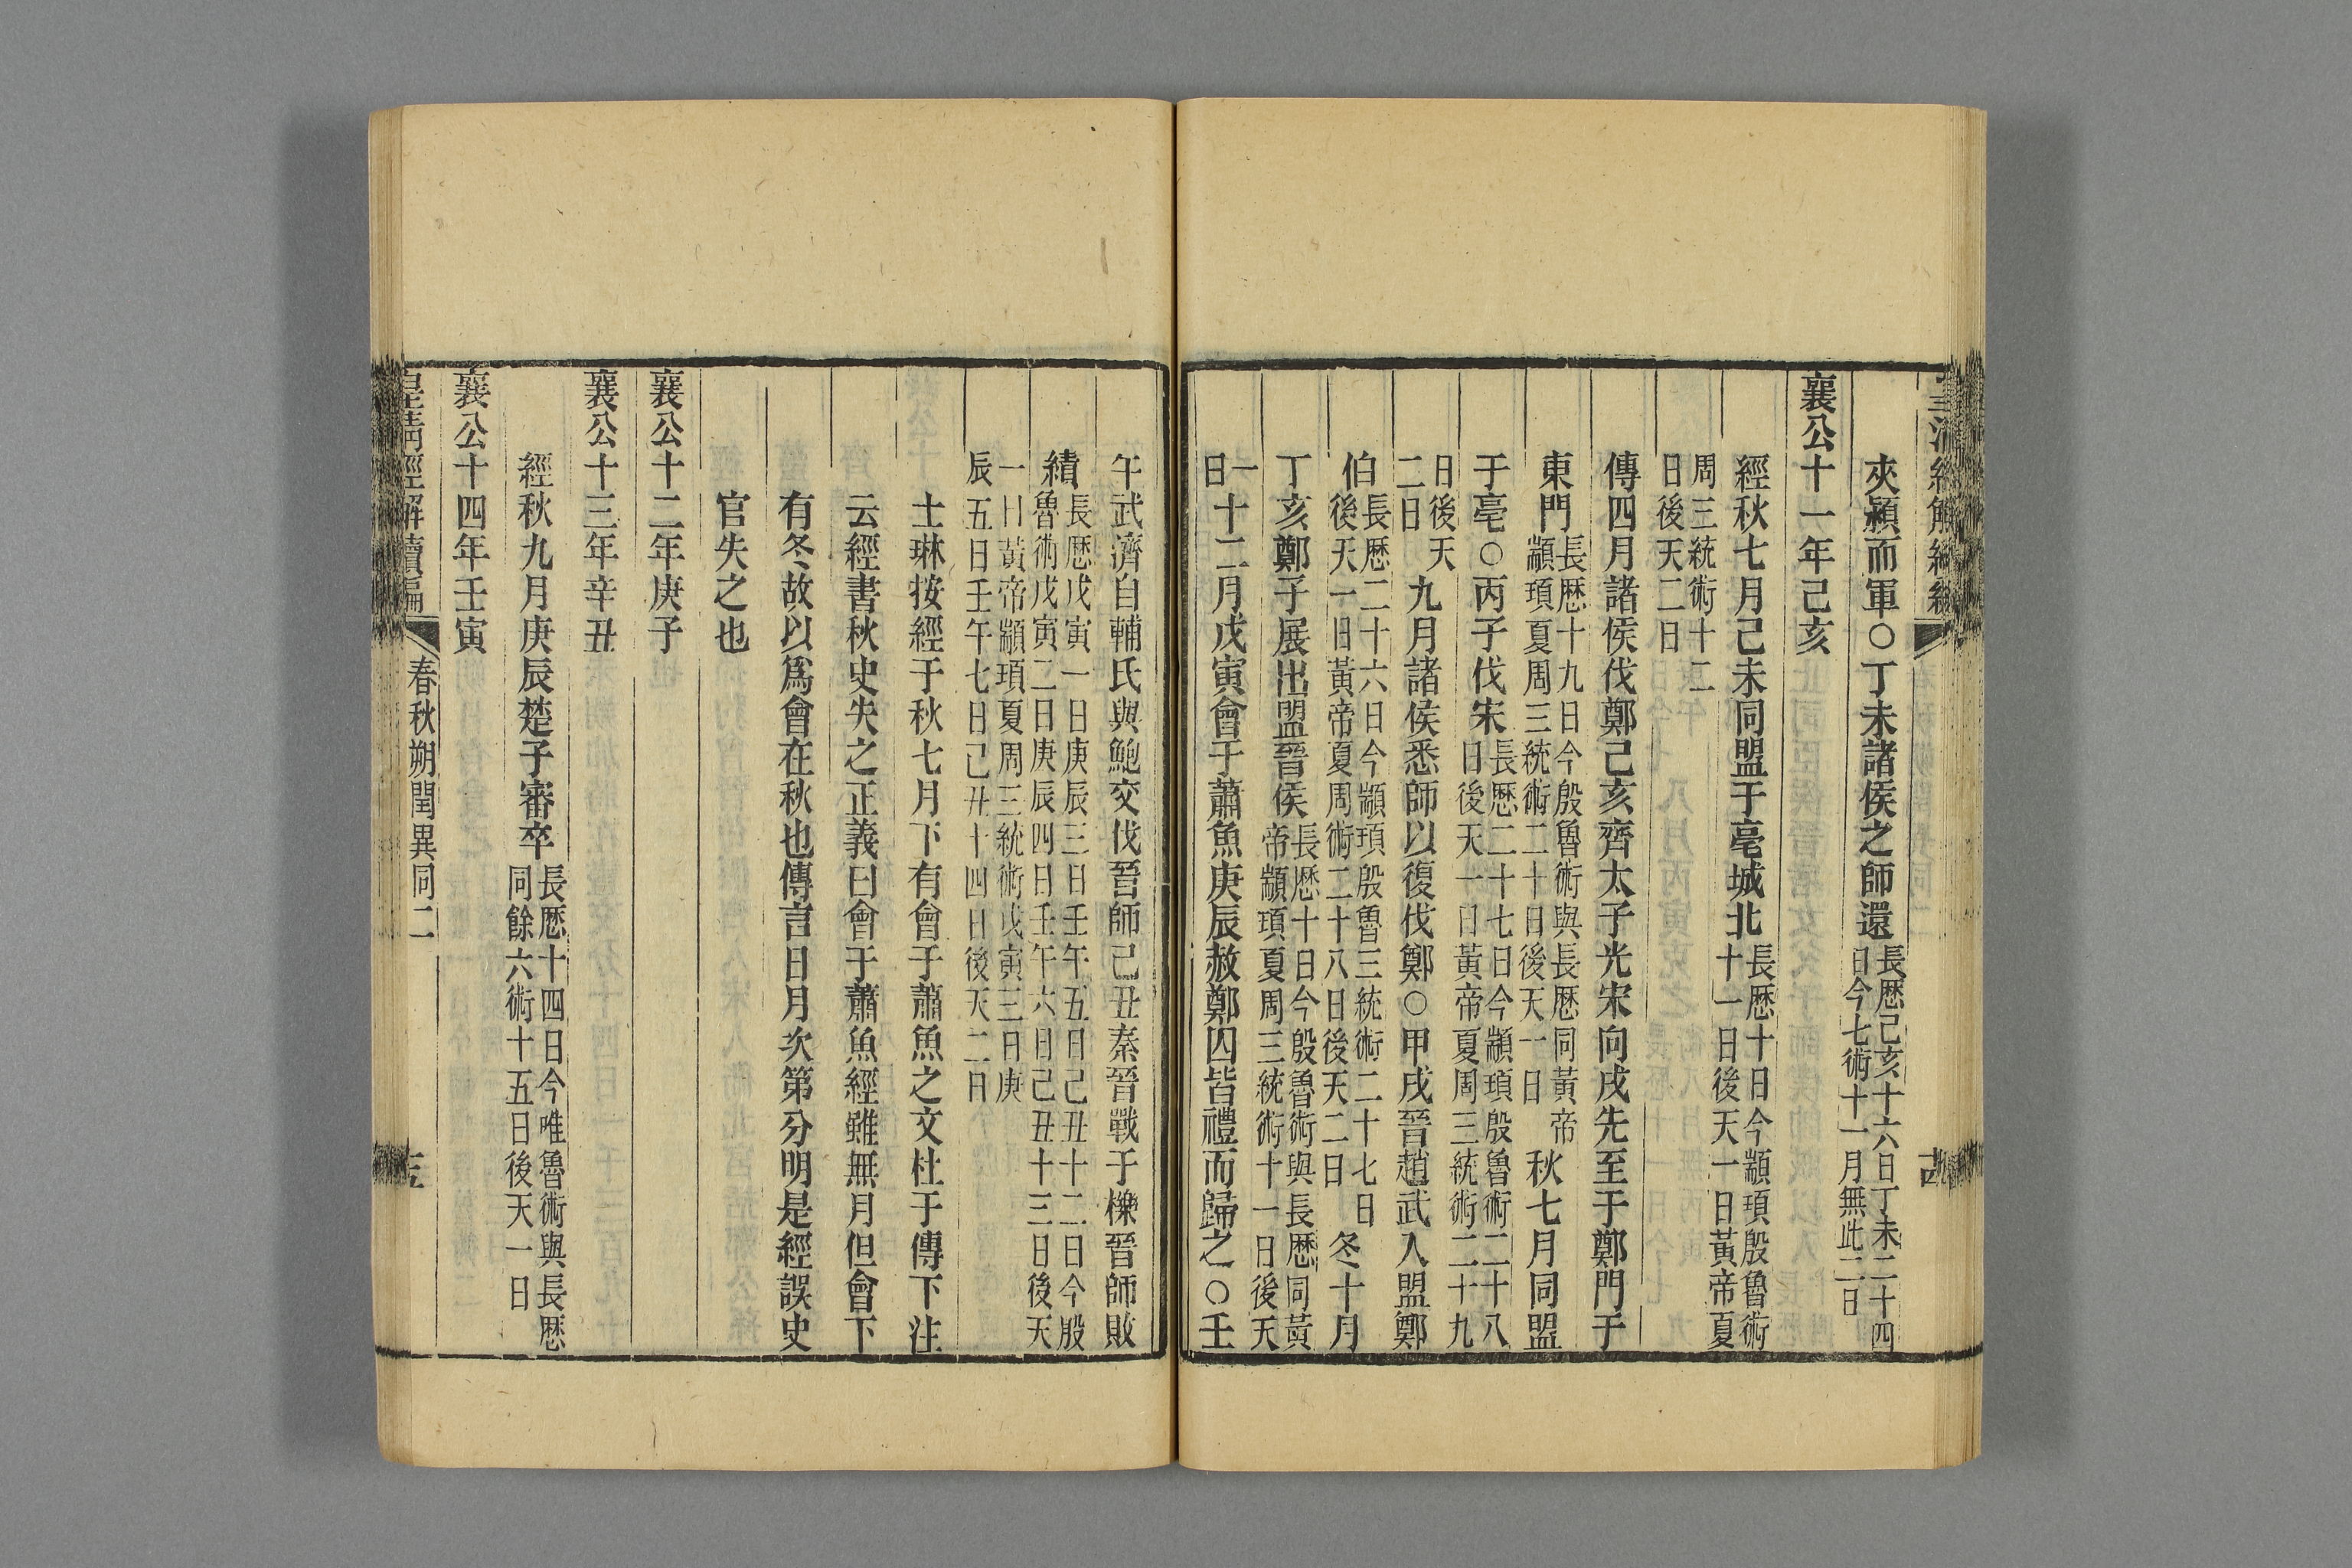 夾潁而軍○丁未諸侯之師還長厯己亥十六日丁未二十四日今七術十一月無此二日
襄公十一年己亥
經秋七月己未同盟于亳城北長厯十日今顓頊殷魯術十一日後天一日黃帝夏
周三統術十二日後天二日
傳四月諸侯伐鄭己亥齊太子光宋向戌先至于鄭門于
東門長厯十九日今殷魯術與長厯同黃帝顓頊夏周三統術二十日後天一日秋七月同盟
于亳○丙子伐宋長厯二十七日今顓頊殷魯術二十八日後天一日黃帝夏周三統術二十九
日後天二日九月諸侯悉師以復伐鄭○甲戌晉趙武入盟鄭
伯長厯二十六日今顓頊殷魯三統術二十七日後天一日黃帝夏周術二十八日後天二日冬十月
丁亥鄭子展出盟晉侯長厯十日今殷魯術與長厯同黃帝顓頊夏周三統術十一日後天
一日十二月戊寅會于蕭魚庚辰赦鄭囚皆禮而歸之○壬
午武濟自輔氏與鮑交伐晉師己丑秦晉戰于櫟晉師敗
績長厯戊寅一日庚辰三日壬午五日己丑十二日今殷魯術戊寅二日庚辰四日壬午六日己丑十三日後天
一日黃帝顓頊夏周三統術戊寅三日庚辰五日壬午七日己丑十四日後天二日
士琳按經于秋七月下有會于蕭魚之文杜于傳下注
云經書秋史失之正義曰會于蕭魚經雖無月但會下
有冬故以爲會在秋也傳言日月次第分明是經誤史
官失之也
襄公十二年庚子
襄公十三年辛丑
經秋九月庚辰楚子審卒長厯十四日今唯魯術與長厯同餘六術十五日後天一日
襄公十四年壬寅
皇清經解續編
春秋朔閏異同二